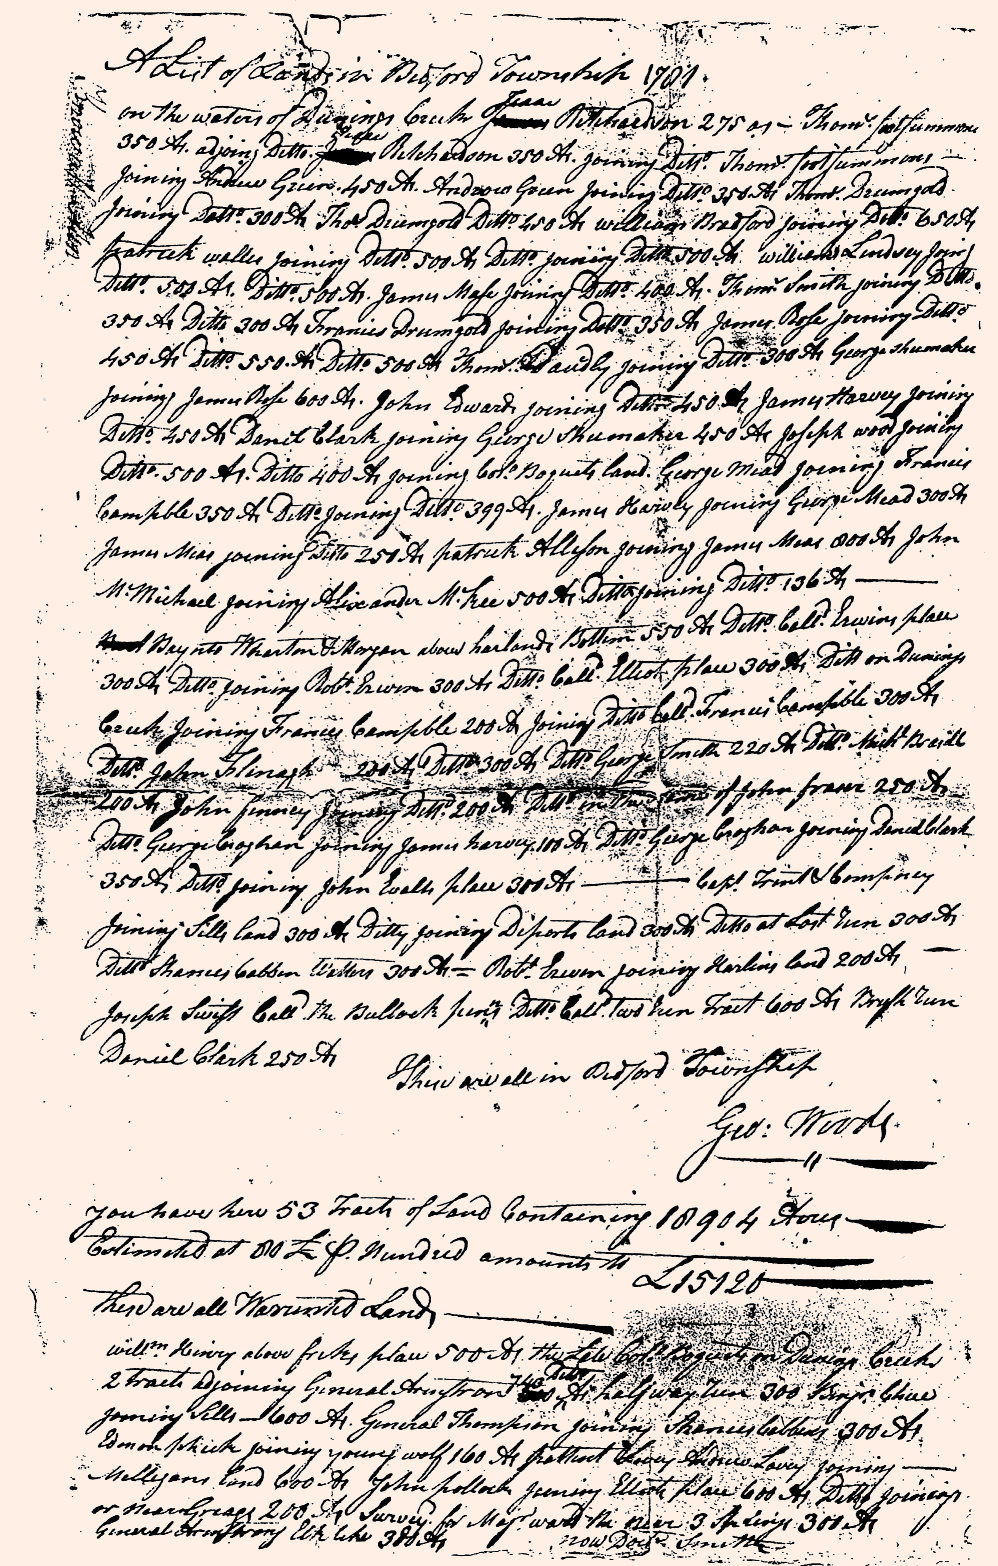 A List of Lands in Bedford Township 17
on the waters of Dunings Creek Isaac Ritchardson 275 as — Thoms. 
350 As. adjoing Ditto. Ritchardson 350 As. joining Ditto. Thoms. 
Joining Andrew Green 450 As Andrew Green Joining Ditto. 350 As Thoms. Drumgold
Joining Ditto. 300 As Thos. Drumgold Ditto. 450 As william Bradford joining Ditto 650 As
patrick waller joining Ditto. 500 As Ditto. joining Ditto 500 As. william Lindsey Joing
Ditto. 500 As. Ditto. 500 As. James Mase joining Ditto. 400 As. Thoms. Smith joining Ditto.
350 As Ditto 300 As Francis Drumgold joining Ditto. 350 As James Rose joining Ditto.
450 As Ditto. 550 As Ditto. 500 As Thoms. joining Ditto. 300 As George Shumaker
Joining James Rose 600 As. John Edwards joining Ditto. 450 As James Harvey joining
Ditto. 450 As Daniel Clark joining George Shumaker 450 As Joseph wood joining
Ditto. 500 As. Ditto 400 As joining Colo. Boquets land. George Mead joining Francis
Campble 350 As Ditto. Joining Ditto. 399 As. James Harvey joining George Mead 300 As
James Mear joining Ditto 250 As patrick Alleson joining James Mear 800 As John
McMichael joining Alixander McKee 500 As Ditto joining Ditto. 136 As —
Baynto Wharton & Morgan above harlands Bottim 550 As Ditto. Calld. Erwins place
300 As Ditto. joining Robt. Erwin 300 As Ditto. Calld. Elliot place 300 As Ditto on Dunings
Creek Joining Francis Campble 200 As Joining Ditto Calld. Francis Campble 300 As
Ditto. John 200 As Ditto. 300 As Ditto George Smith 220 As Ditto. 
200 As John finney Joining Ditto. 200 As Ditto in the name of John fraser 250 As
Ditto. George Croghan joining James harvey 100 As Ditto. George Croghan joining Daniel Clark
350 As Ditto. joining John Evalts place 300 As — Capt. Trent & Compiney
Joining Sills land 300 As Ditty joining Disports land 300 As Ditto at Lost Run 300 As
Ditto Shances Cabben Watters 300 As = Robt. Erwin joining Harlins land 200 As —
Joseph Swift Calld. the Bullock pens Ditto Calld. two Run Tract 600 As Brush Run
Daniel Clark 250 As
These are all in Bedford Township
Geo: Woods.
you have here 53 Tracts of Land Containing 18904 Acres
Estimeted at 80 £ P. Hundred amounts to
£15120
These are all Warrented Lands
willm. Henry above place 500 As the Late Colo. Boquets on Dunings Creek
2 tracts adjoining General Armstron 740 Ditto As halfway Run 300 
joining Sills — 600 As. General Thompson joining Shances Cabbens 300 As.
Edmon joining young wolf 160 As Andrew Lavey joining —
Mellegans land 600 As John pollock joining Elliots place 600 As Ditto joining
or near Gregs 200 As Survey. for Majr. ward the 3 Springs 300 As
General Armstrong Elk like 380 As now Doctr. Smith